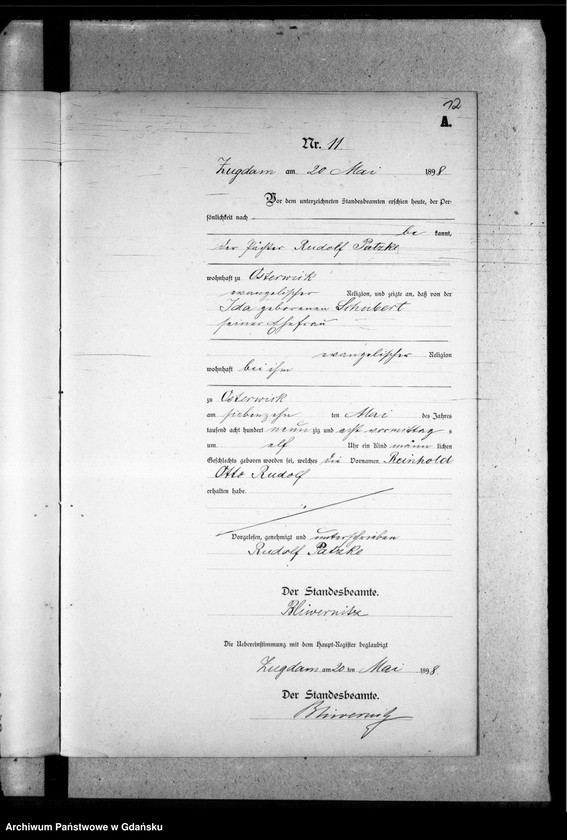 12
A.
Nr. 11
Zugdam am 20 Mai 1898
Vor dem unterzeichneten Standesbeamten erschien heute, der Per-
sönlichkeit nach
be kannt,
der Pächter Rudolf Patzke
wohnhaft zu Osterwick
evangelischer Religion, und zeigte an, daß von der
Ida geborenen Schubert
seiner Ehefrau
evangelischer Religion
wohnhaft bei ihm
zu Osterwick
am siebenzehn ten Mai des Jahres
tausend acht hundert neun zig und acht vormittag s
um elf Uhr ein Kind männ lichen
Geschlechts geboren worden sei, welches die Vornamen Reinhold
Otto Rudolf
erhalten habe.
Vorgelesen, genehmigt und unterschrieben
Rudolf Patzke
Der Standesbeamte.
Bliwernitz
Die Uebereinstimmung mit dem Haupt-Register beglaubigt
Zugdam am 20 ten Mai 1898.
Der Standesbeamte.
Bliwernitz
Archiwum Państwowe w Gdańsku